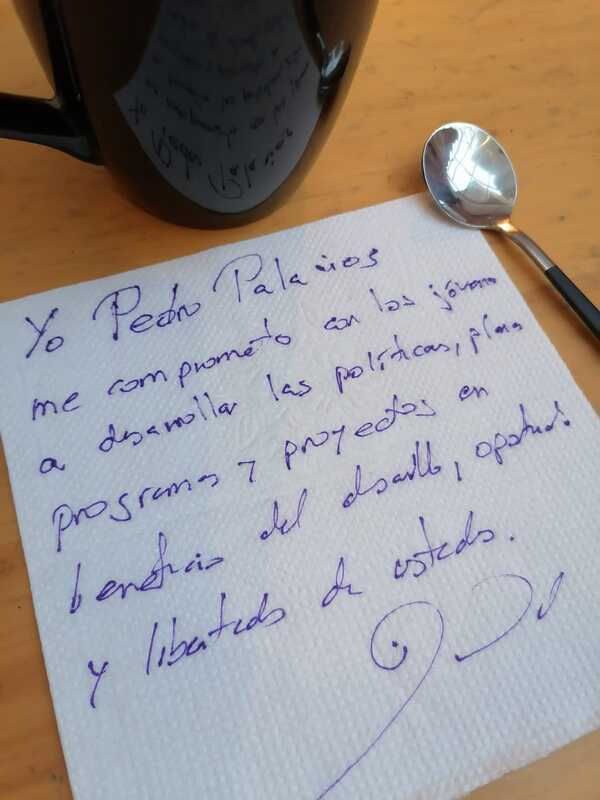 Yo Pedro Palacios
me comprometo con los jóvenes
a desarrollar las políticas, planes
programas y proyectos en
beneficio del desarrollo,
y libertades de ustedes.